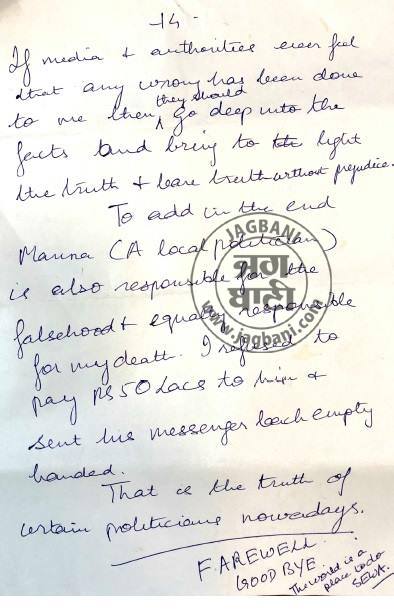 - 14 -
If media & authorities ever feel
that any wrong has been done
to me then they should go deep into the
facts and bring to the light
the truth & bare truth without prejudice.
To add in the end
Manna (A local politician)
is also responsible for the
falsehood & equally responsible
for my death. I refused to
pay Rs 50 Lacs to him &
sent his messenger back empty
handed.
That is the truth of
certain politicians nowadays.
FAREWELL.
GOOD BYE.
The world is a
place to do
SEWA.
JAGBANI
ਜਗ
ਬਾਣੀ
www.jagbani.com